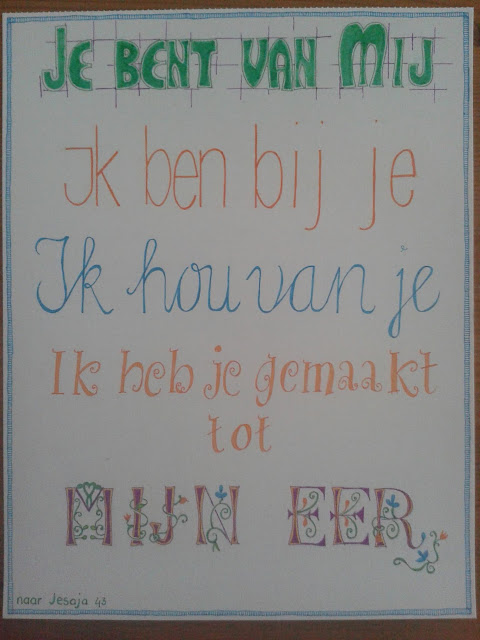 JE BENT VAN MIJ
Ik ben bij je
Ik hou van je
Ik heb je gemaakt
tot
MIJN EER
naar Jesaja 43